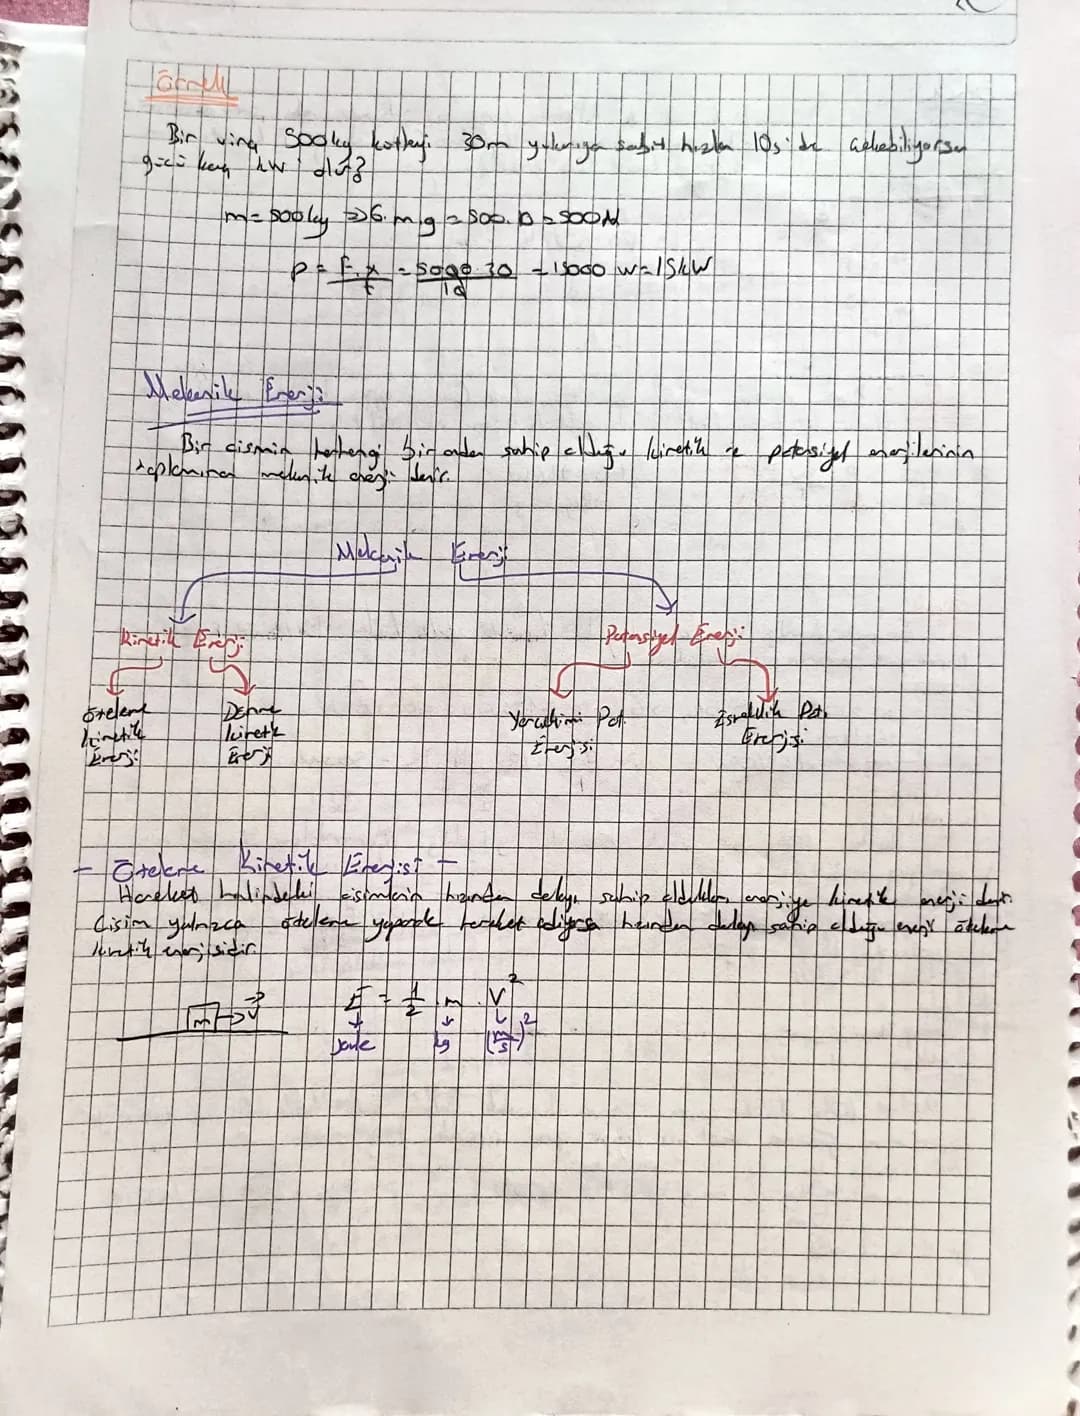 Örnek
Bir vinç 500kg kütleyi 30m yukarıya sabit hızla 10s'de çekebiliyorsa
gücü kaç kW olur?
m=500kg => G.m.g = 500.10 = 500N
P = F.x/t = 5000.30/10 = 15000 W = 15kW
Mekanik Enerji
Bir cismin herhangi bir anda sahip olduğu kinetik ve potansiyel enerjilerinin
toplamına mekanik enerji denir.
Mekanik Enerji
Kinetik Enerji
Potansiyel Enerji
Öteleme Kinetik Enerji
Dönme Kinetik Enerji
Yerçekimi Pot. Enerjisi
Esneklik Pot. Enerjisi
- Öteleme Kinetik Enerjisi -
Hareket halindeki cisimlerin hızından dolayı sahip oldukları enerjiye kinetik enerji denir.
Cisim yalnızca öteleme yaparak hareket ediyorsa hızından dolayı sahip olduğu enerji öteleme
kinetik enerjisidir.
m → v⃗
E = 1/2 .m .V²
Joule kg (m/s)²